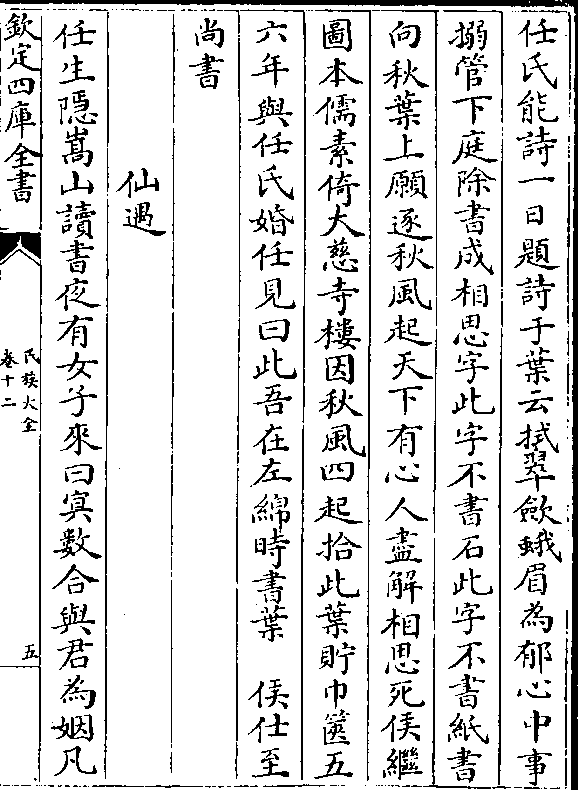 任氏能詩一日題詩于葉云拭翠歛蛾眉為郁心中事
搦管下庭除書成相思字此字不書石此字不書紙書
向秋葉上願逐秋風起天下有心人盡解相思死侯繼
圖本儒素倚大慈寺樓因秋風四起拾此葉貯巾篋五
六年與任氏婚任見曰此吾在左綿時書葉　侯仕至
尚書
仙遇
任生隱嵩山讀書夜有女子來曰㝠數合與君為姻凡
欽定四庫全書
氏族大全
卷十二
五